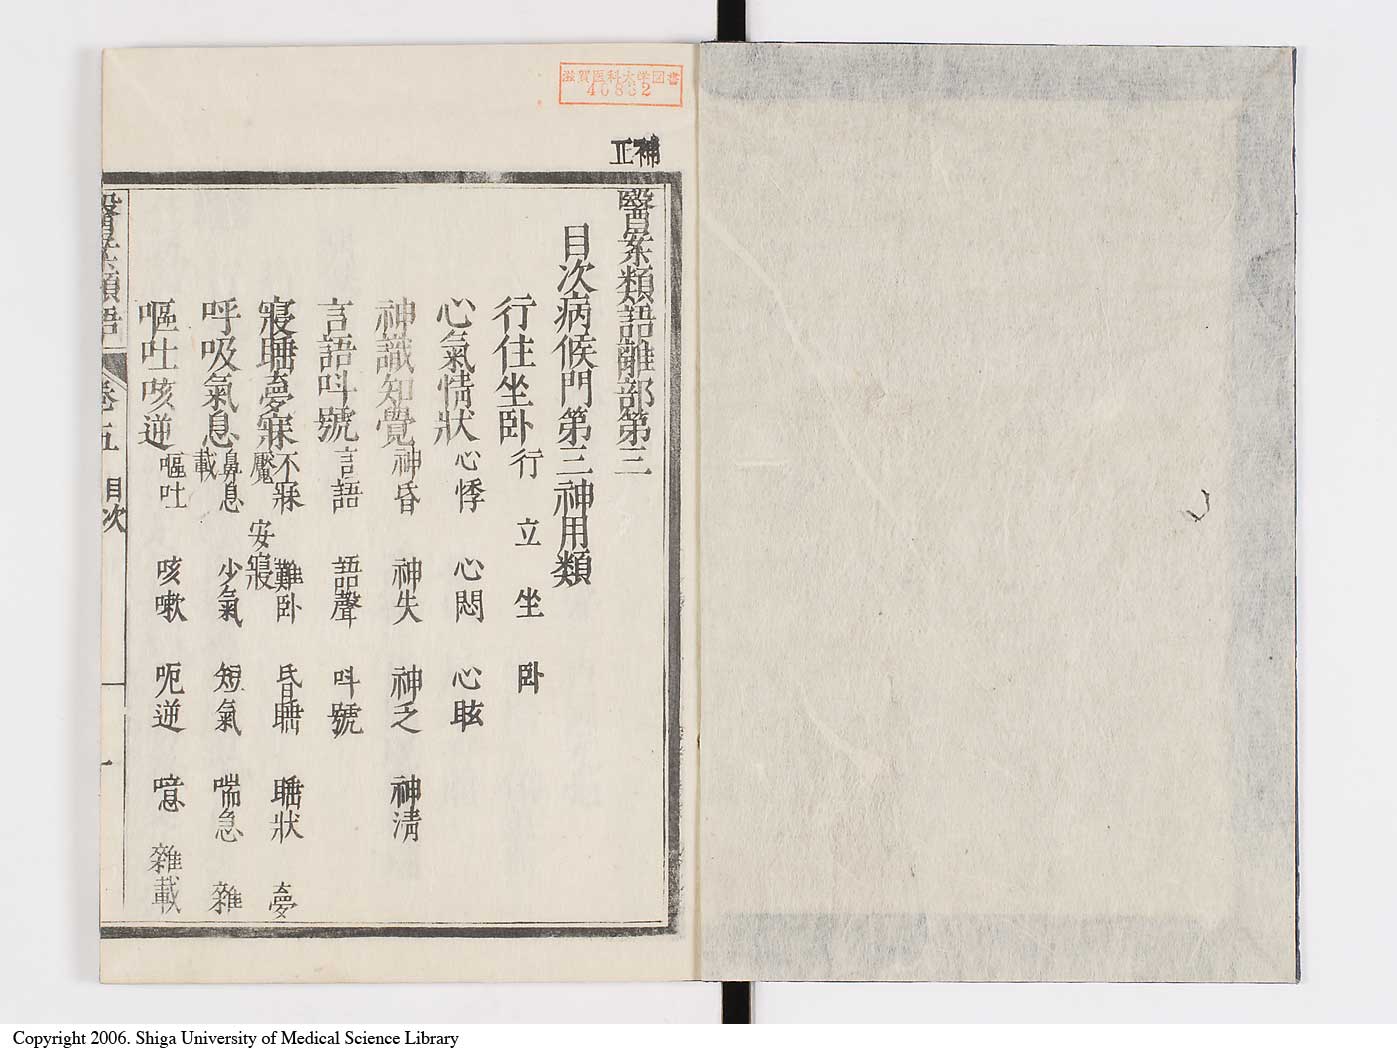 滋賀医科大学図書
40862
補正
醫案類語離部第三
目次病候門第三神用類
行住坐卧 行 立 坐 卧
心氣情狀 心悸 心悶 心眩
神識知覺 神昏 神失 神乏 神淸
言語呌號 言語 語聲 呌號
寢睡夢寐 不寐 難卧 昏睡 睡狀 夢
魘 安寢
呼吸氣息 鼻息 少氣 短氣 喘急 雜
載
嘔吐咳逆 嘔吐 咳嗽 呃逆 噫 雜載
醫案類語 卷五 目次 一
Copyright 2006. Shiga University of Medical Science Library